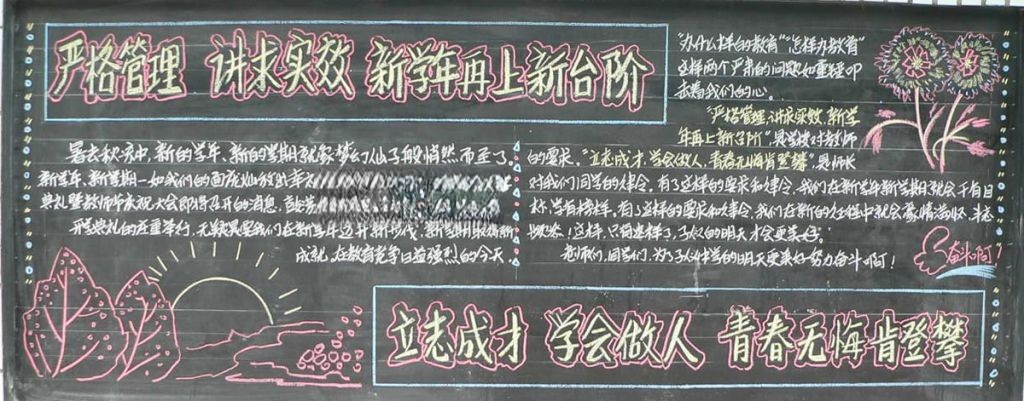 严格管理 讲求实效 新学年再上新台阶
暑去秋来中,新的学年、新的学期就象梦幻仙子般悄然而至了。
新学年、新学期一如我们的面庞灿放
典礼暨教师节庆祝大会即将召开的消息,
开学典礼的庄重举行,无疑是要我们在新学年迈开新步伐,新学期取得新
成就,在教育竞争日益强烈的今天,
"办什么样的教育""怎样办教育"
这样两个严肃的问题如重锤叩
击着我们的心。
"严格管理,讲求实效,新学
年再上新台阶",是学校对教师
的要求,"立志成才,学会做人,青春无悔肯登攀",是师长
对我们同学的使命。有了这样的要求和使命,我们在新学年新学期就会干有目
标、学有榜样。有了这样的要求和使命,我们在新的征程中就会豪情满怀、
！这样,只有这样了,子的明天才会更美好。
老师们,同学们,为了子中学的明天更美好努力奋斗啊!
奋斗啊!
立志成才 学会做人 青春无悔肯登攀